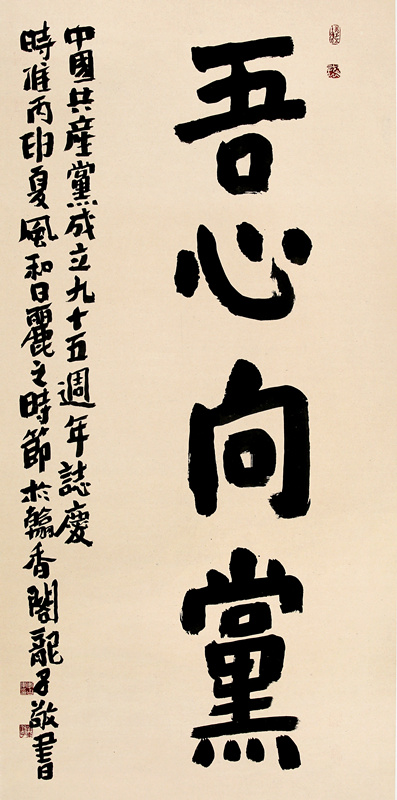 吾心向黨
中國共産黨成立九十五週年誌慶
時維丙申夏風和日麗之時節於翰香閣龍子敬書